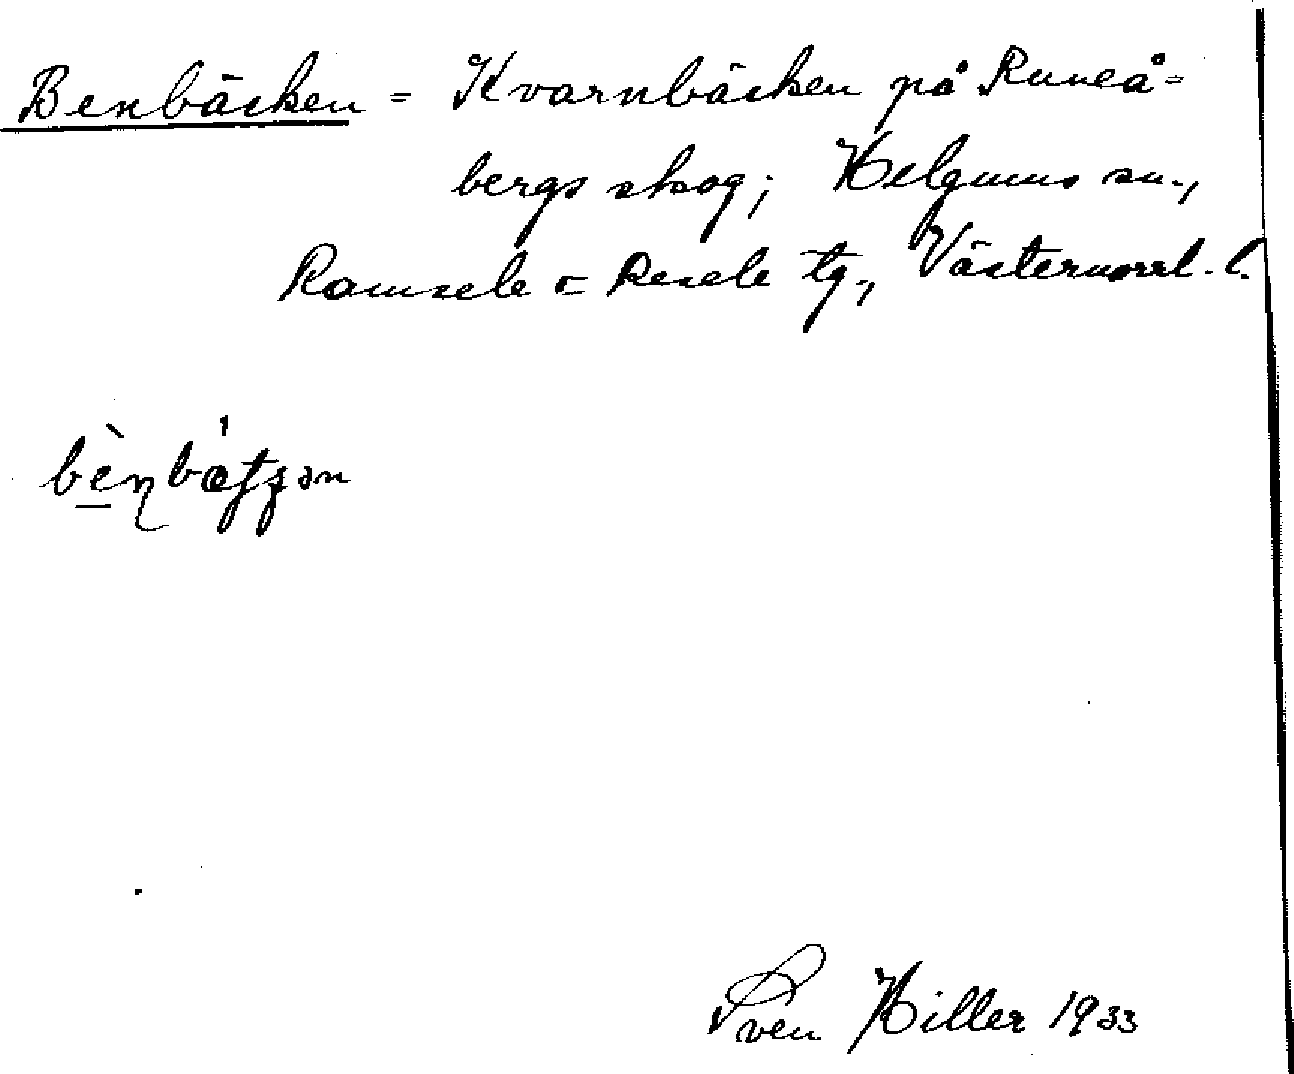 Benbäcken = Kvarnbäcken på Runeå-
bergs skog; Helgums sn.,
Ramsele o Resele tg., Västernorrl. l.
Sven Hiller 1933